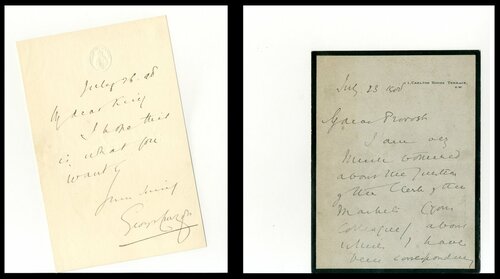 July 26. 08
My dear King
I hope this
is what you
want?
Yours sincerely
George Curzon
1, CARLTON HOUSE TERRACE,
S.W.
July 23 1908
My dear Provost
I am very
much worried
about the question
of the Clerk of the
Markets (your
colleague) about
whom I have
been corresponding